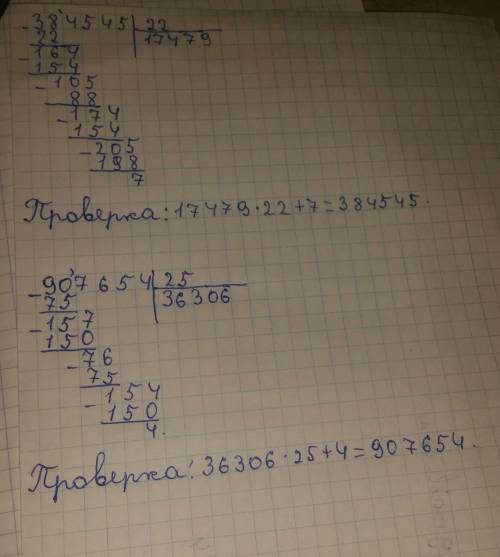 - 384545 | 22
22 | 17479
- 164
154
- 105
88
- 174
154
- 205
198
7
Проверка: 17479·22+7=384545.
- 907654 | 25
75 | 36306
- 157
150
- 76
75
- 154
150
4.
Проверка: 36306·25+4=907654.